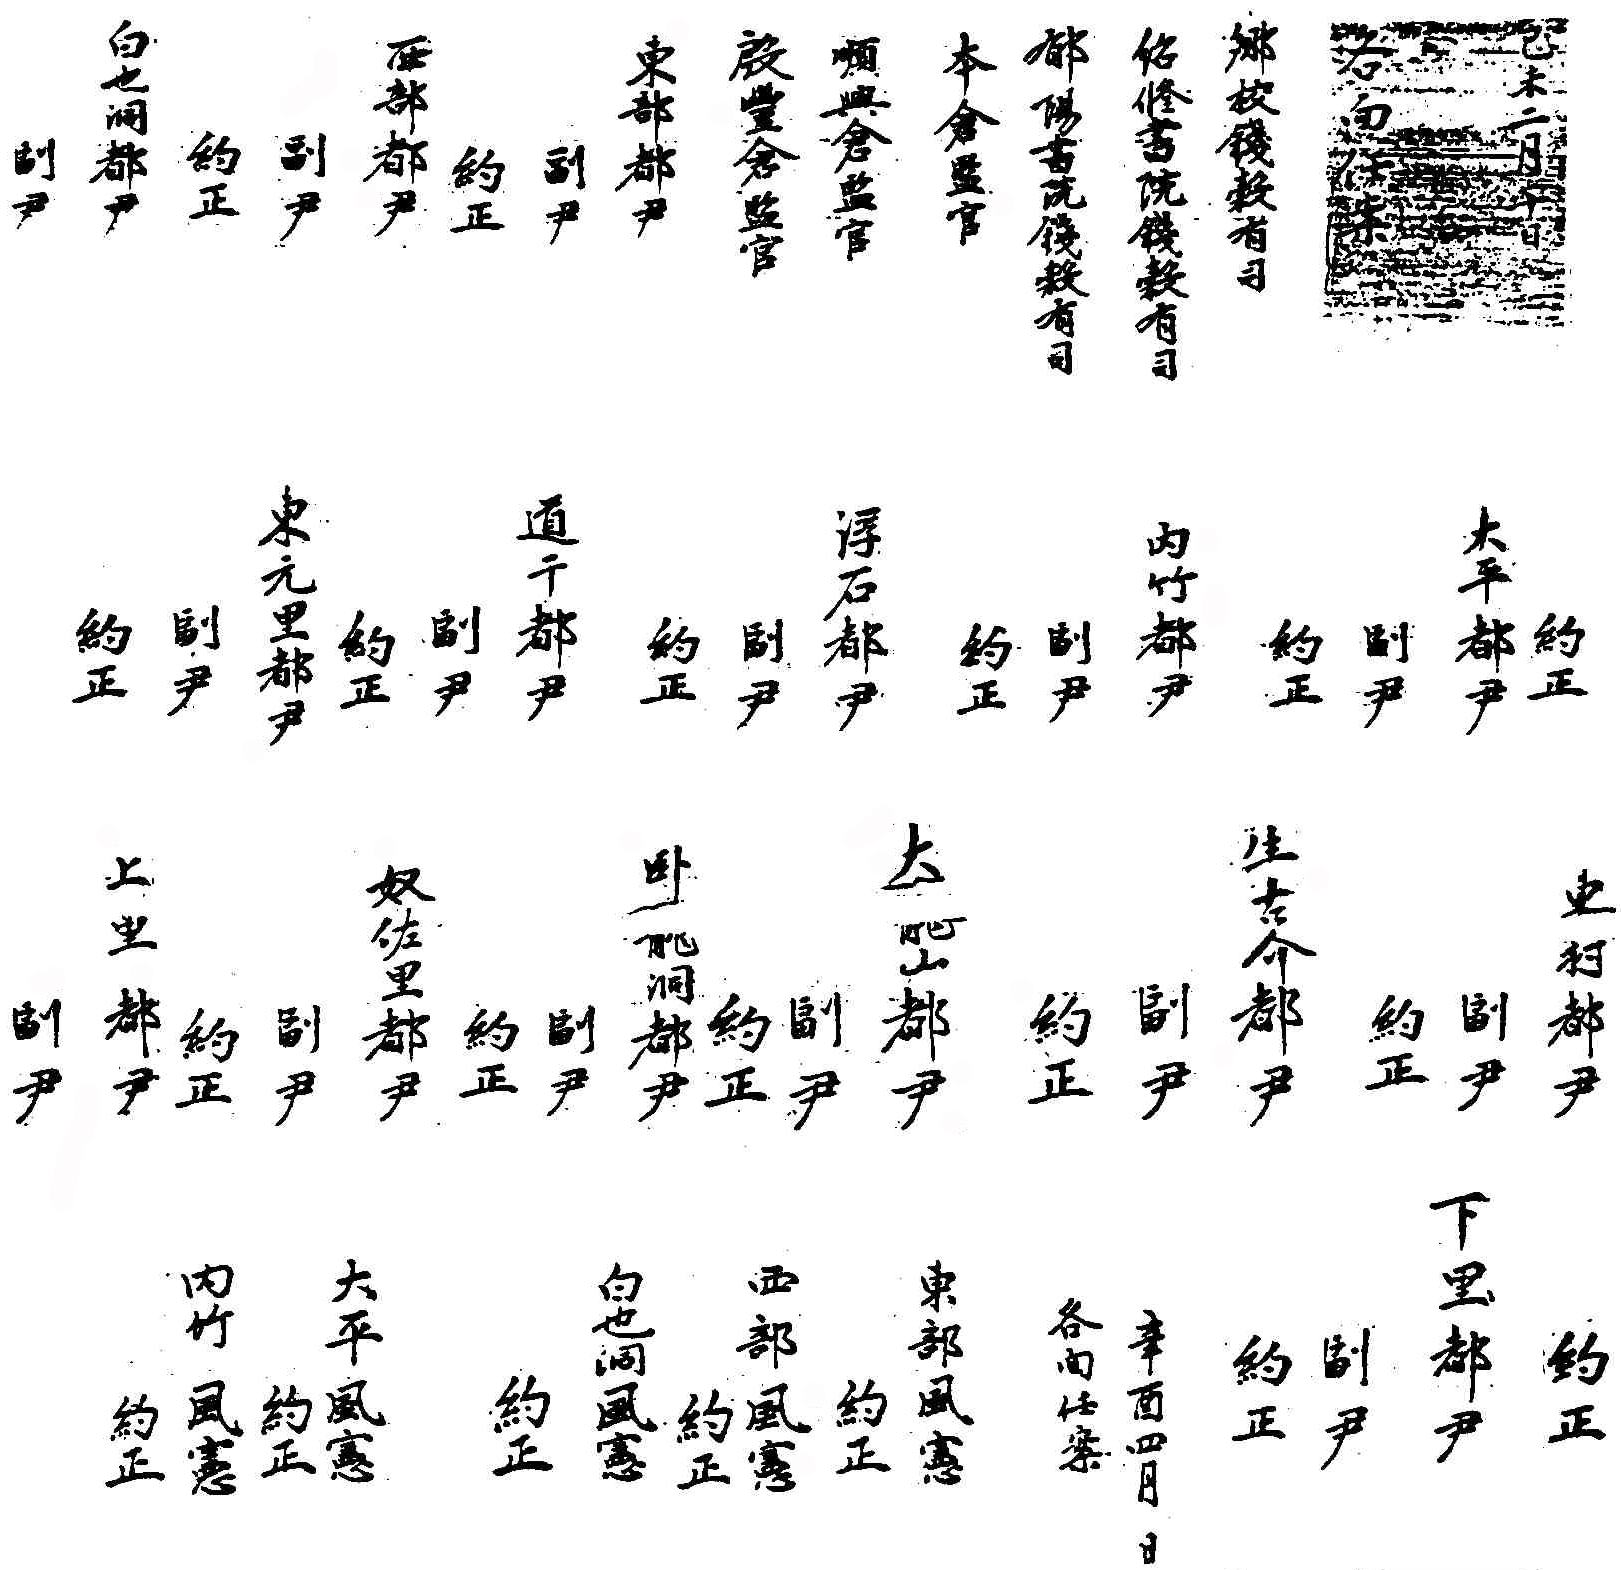 己未二月十日
各面任案
鄉校錢穀有司
紹修書院錢穀有司
郁陽書院錢穀有司
本倉監官
順興倉監官
殷豐倉監官
東部都尹
副尹
約正
西部都尹
副尹
約正
白也洞都尹
副尹
約正
大平都尹
副尹
約正
內竹都尹
副尹
約正
浮石都尹
副尹
約正
道干都尹
副尹
約正
東元里都尹
副尹
約正
史狩都尹
副尹
約正
生古介都尹
副尹
約正
大龍山都尹
副尹
約正
臥龍洞都尹
副尹
約正
奴佐里都尹
副尹
約正
上里都尹
副尹
約正
下里都尹
副尹
約正
辛酉四月 日
各面任案
東部風憲
約正
西部風憲
約正
白也洞風憲
約正
大平風憲
約正
內竹風憲
約正